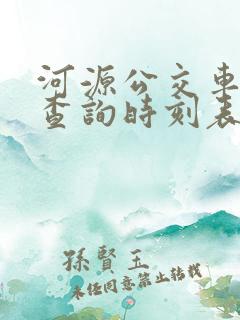 河源公交車
查詢時刻表
孫賢玉
未任同意禁止转载